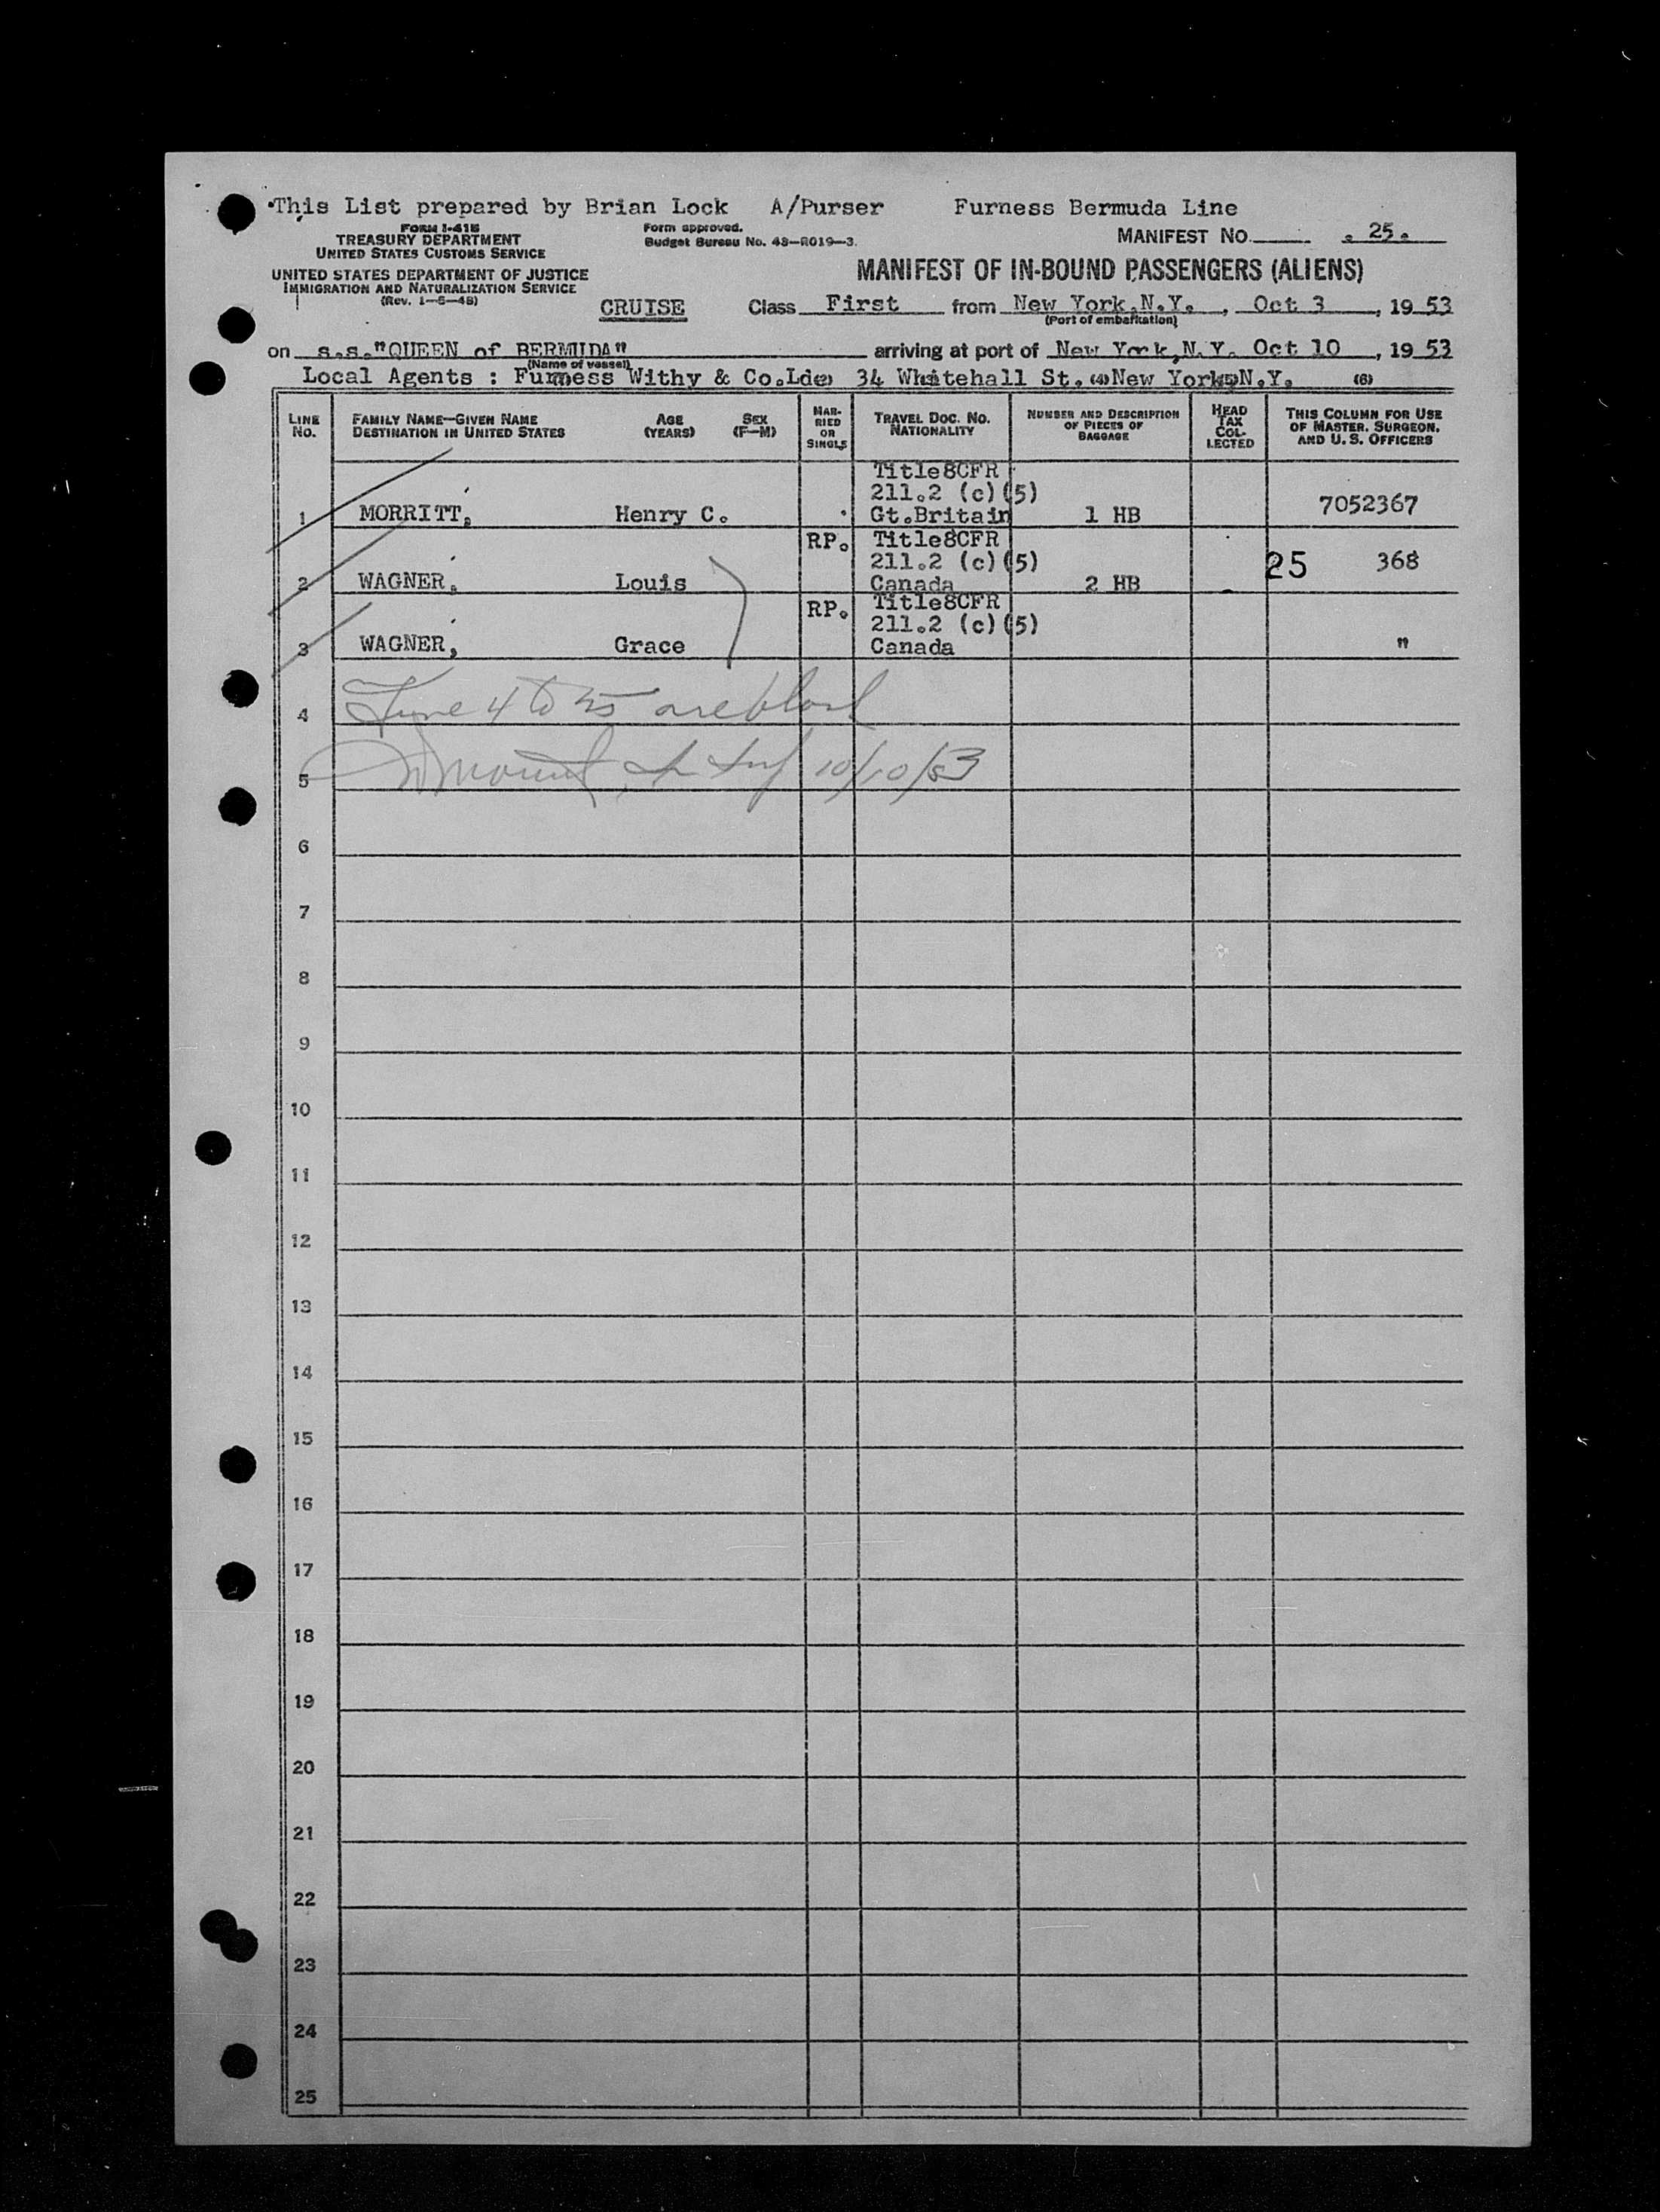 This List prepared by Brian Lock A/Purser Furness Bermuda Line
FORM I-415
TREASURY DEPARTMENT
UNITED STATES CUSTOMS SERVICE
UNITED STATES DEPARTMENT OF JUSTICE
IMMIGRATION AND NATURALIZATION SERVICE
(Rev. 1-5-48)
Form approved.
Budget Bureau No. 43-R019-3.
MANIFEST NO. 25.
MANIFEST OF IN-BOUND PASSENGERS (ALIENS)
CRUISE Class First from New York,N.Y. , Oct 3 , 19 53
(Port of embarkation)
on s.s."QUEEN of BERMUDA" arriving at port of New York,N.Y. Oct 10 , 19 53
(Name of vessel)
Local Agents : Furness Withy & Co.Ld. 34 Whitehall St. (4) New York,N.Y. (6)
LINE NO. FAMILY NAME—GIVEN NAME DESTINATION IN UNITED STATES AGE (YEARS) SEX (F—M) MARRIED OR SINGLE TRAVEL DOC. NO. NATIONALITY NUMBER AND DESCRIPTION OF PIECES OF BAGGAGE HEAD TAX COLLECTED THIS COLUMN FOR USE OF MASTER, SURGEON, AND U. S. OFFICERS
Title8CFR
211.2 (c)(5)
1 MORRITT, Henry C. Gt.Britain 1 HB 7052367
RP. Title8CFR
211.2 (c)(5) 25 368
2 WAGNER, Louis Canada 2 HB
RP. Title8CFR
211.2 (c)(5)
3 WAGNER, Grace Canada "
4 Line 4 to 25 are blank
5 10/10/53
6
7
8
9
10
11
12
13
14
15
16
17
18
19
20
21
22
23
24
25